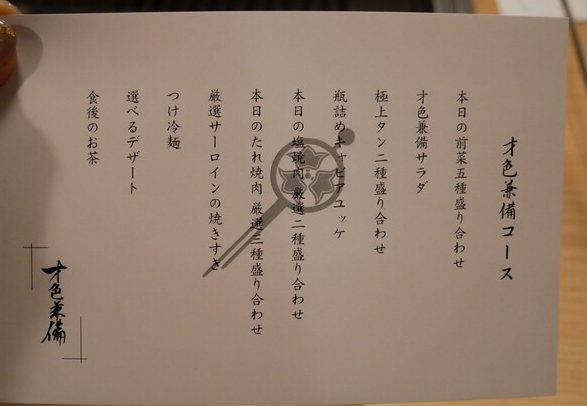 才色兼備コース
本日の前菜五種盛り合わせ
才色兼備サラダ
極上タン二種盛り合わせ
瓶詰めキャビアユッケ
本日の塩焼肉 厳選二種盛り合わせ
本日のたれ焼肉 厳選三種盛り合わせ
厳選サーロインの焼きすき
つけ冷麺
選べるデザート
食後のお茶
才色兼備